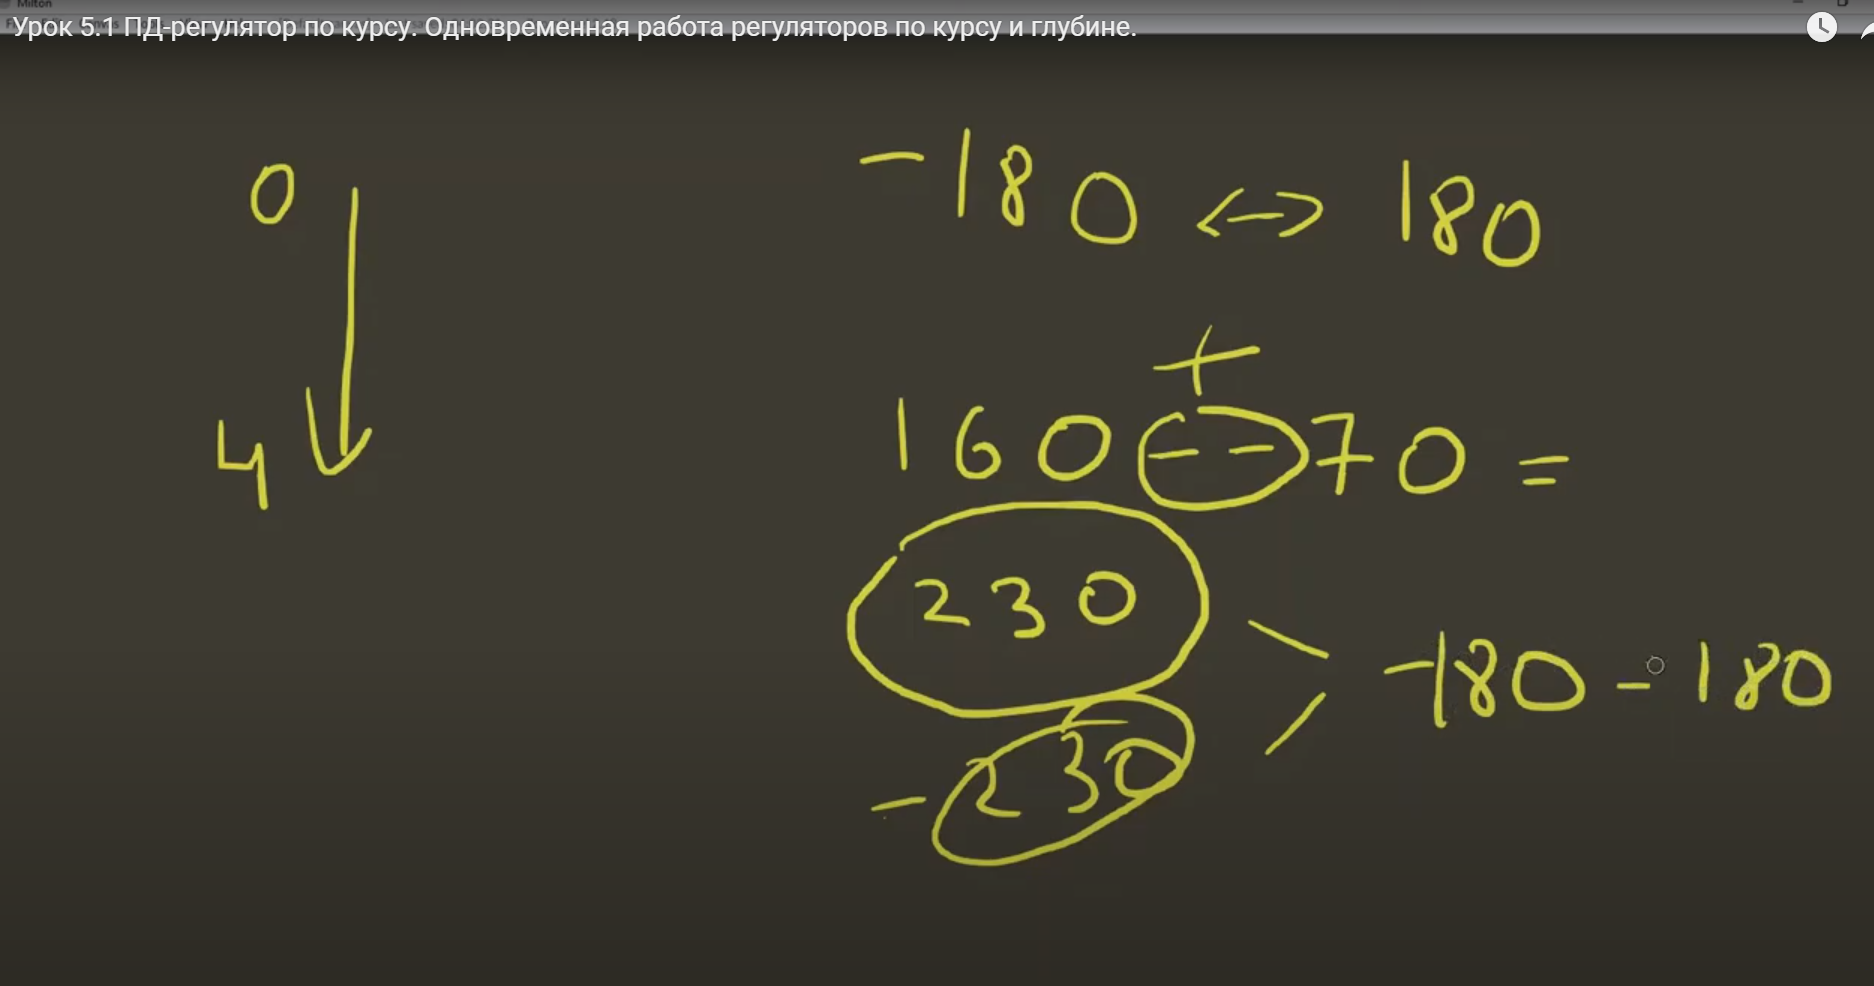 Milton
Урок 5.1 ПД-регулятор по курсу. Одновременная работа регуляторов по курсу и глубине.
0
4
-180 <-> 180
+
160 - - 70 =
230
-230
-180 - 180